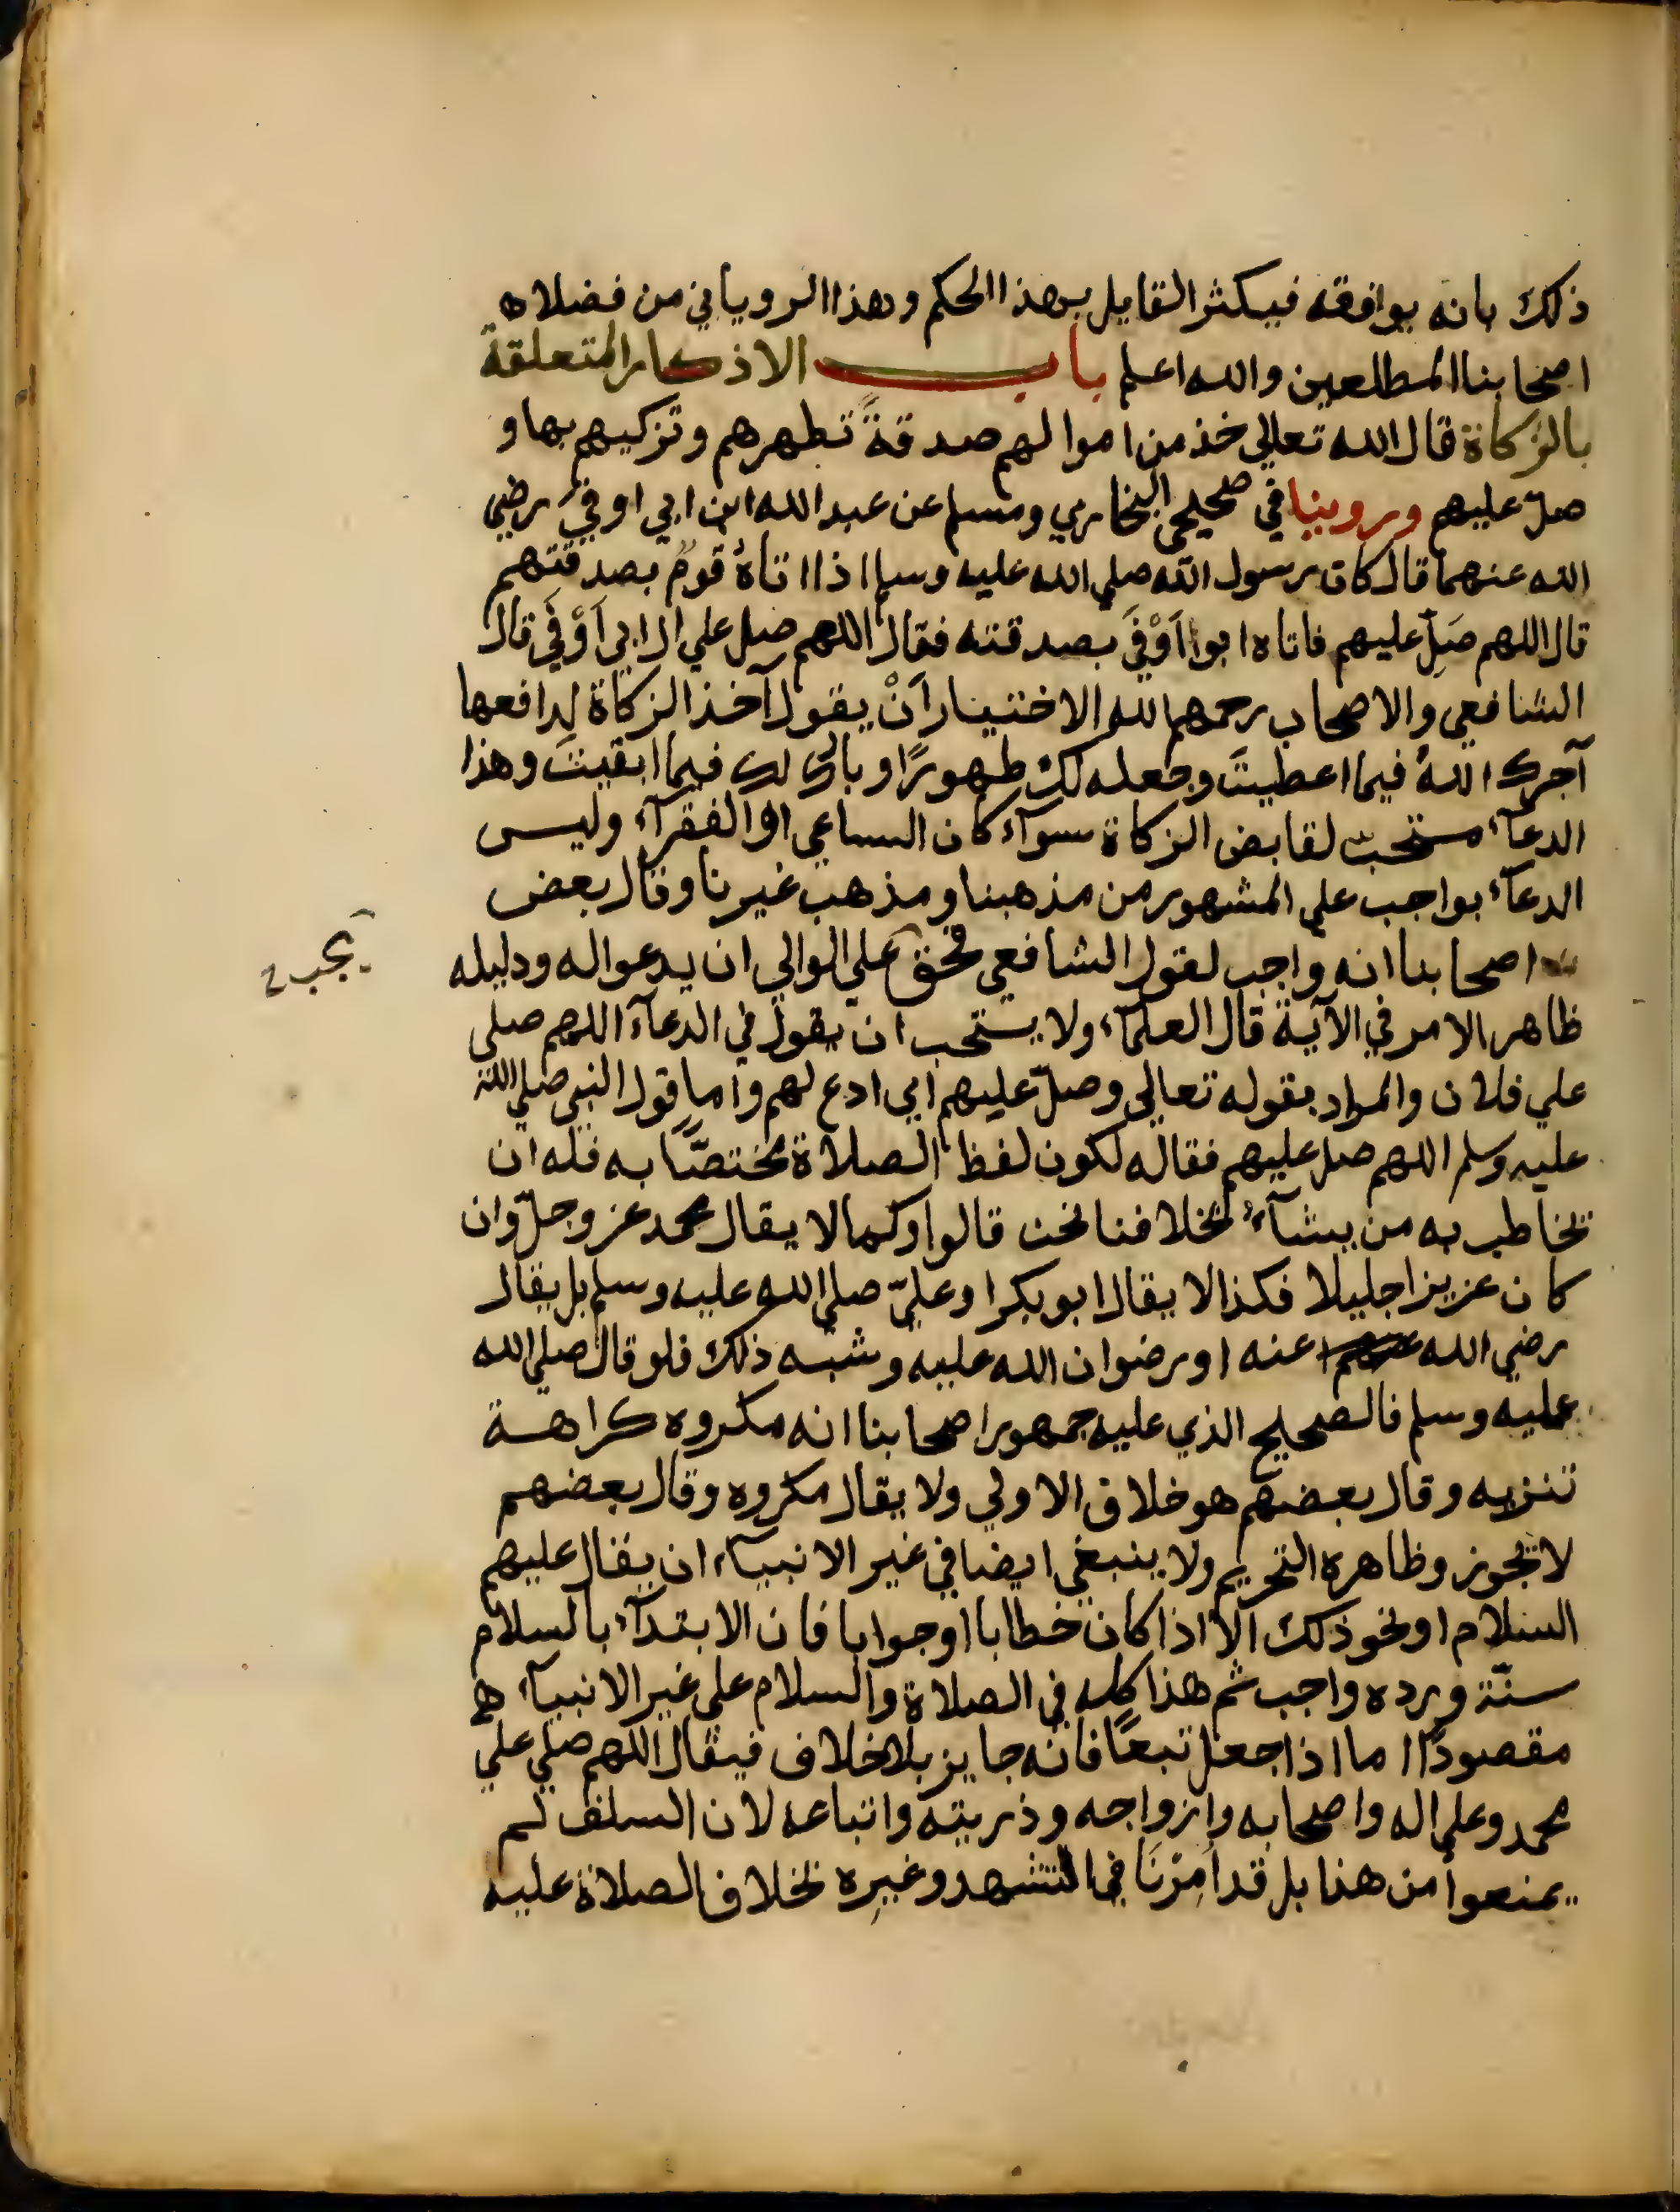 ذلك بانه يوافقه فيكثر القايل بهذا الحكم وهذا الروياني من فضلاء
اصحابنا المطلعين والله اعلم باب الاذكار المتعلقة
بالزكاة قال الله تعالي خذ من اموالهم صدقةً تطهرهم وتزكيهم بها و
صلّ عليهم وروينا في صحيحي البخاري ومسلم عن عبد الله ابن ابي اوفي رضي
الله عنهما قال كان رسول الله صلي الله عليه وسلم اذا اتاهُ قومٌ بصدقتهم
قال اللهم صَلِّ عليهم فاتاه ابوا اَوْفَي بصدقته فقال اللهم صل علي ال ابي اَوْفَي قال
الشافعي والاصحاب رحمهم الله الاختيار اَنْ يقول آخذ الزكاة لدافعها
آجرك اللهُ فيما اعطيتَ وجعله لك طهورًا وبارك لك فيما ابقيتَ وهذا
الدعآء مستحبّ لقابض الزكاة سوآء كان الساعي او الفقرآء وليس
الدعآء بواجب علي المشهور من مذهبنا ومذهب غيرنا وقال بعض
اصحابنا انه واجب لقول الشافعي فحق علي الوالي ان يدعوا له ودليله
يجب
ظاهر الامر في الآية قال العلمآء ولا يستحب ان يقول في الدعآء اللهم صلي
علي فلان والمراد بقوله تعالي وصلّ عليهم اي ادع لهم واما قول النبي صلي الله
عليه وسلم اللهم صل عليهم فقاله لكون لفظ الصلاة مختصًّا به فله ان
يخاطب به من يشآء بخلافنا نحن قالوا وكما لا يقال محمد عز وجلّ وان
كان عزيزا جليلا فكذا لا يقال ابو بكر او عليّ صلي الله عليه وسلم بل يقال
رضي الله عنه او رضوان الله عليه وشبه ذلك فلو قال صلي الله
عليه وسلم فالصحيح الذي عليه جمهور اصحابنا انه مكروه كراهة
تنزيه وقال بعضهم هو خلاف الاولي ولا يقال مكروه وقال بعضهم
لا يجوز وظاهره التحريم ولا ينبغي ايضا في غير الانبيآء ان يقال عليهم
السلام او نحو ذلك الا اذا كان خطابا او جوابا فان الابتدآء بالسلام
سنّة ورده واجب ثم هذا كله في الصلاة والسلام علي غير الانبيآء
مقصودًا اما اذا جعل تبعًا فانه جايز بلا خلاف فيقال اللهم صلي علي
محمد وعلي اله واصحابه وازواجه وذريته واتباعه لان السلف لم
يمنعوا من هذا بل قد اُمِرْنَا في التشهد وغيرِه بخلاف الصلاة عليه